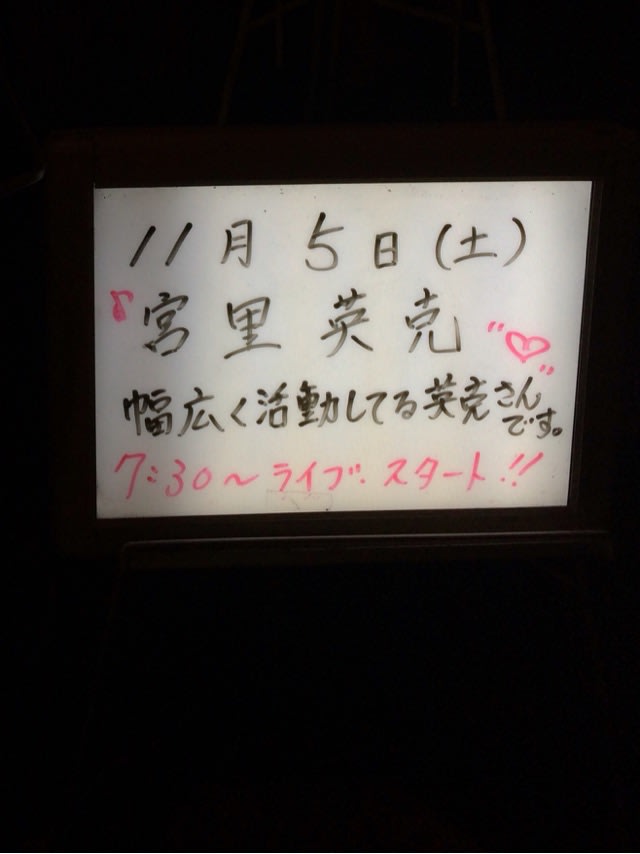 11月5日(土)
♪宮里英克"♡"
幅広く活動してる英克さんです。
7:30～ライブ.スタート!!